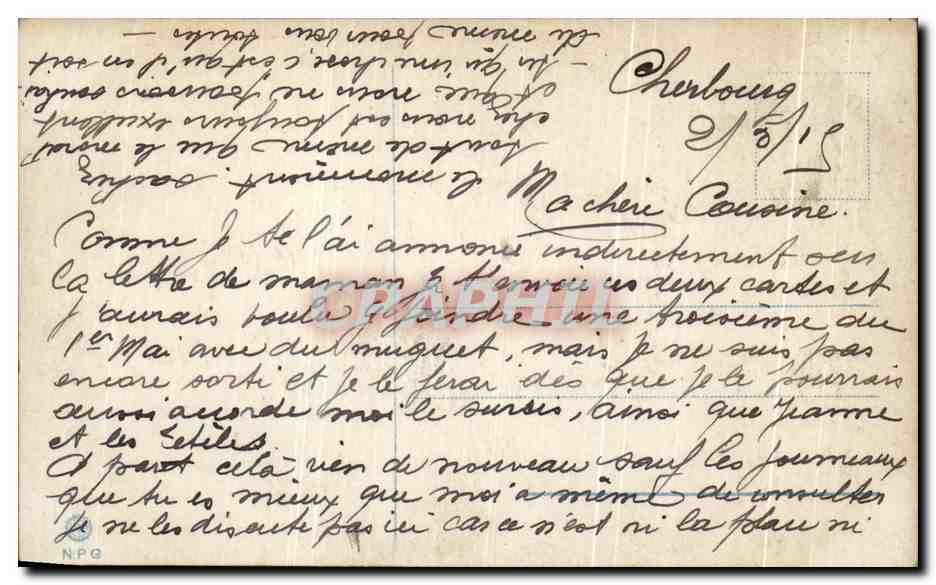 Cherbourg
2/5/15
Ma chère Cousine.
Comme je te l'ai annoncé indirectement sur
la lettre de maman je t'envoie ces deux cartes et
j'aurais voulu y joindre une troisième du
1er Mai avec du muguet, mais je ne suis pas
encore sorti et je le ferai dès que je le pourrais
aussi accorde moi le sursis, ainsi que Jeanne
et les
A part celà rien de nouveau sauf les journeaux
que tu es mieux que moi a même de consulter
je ne les discute pas ici car ce n'est ni la place ni
le moment. Sachez
tout de même que le moral
chez nous est toujours excellent
et que nous ne pensons
qu'une chose c'est qu'il en soit
de même pour vous toutes -
CPAPHIL
NPG